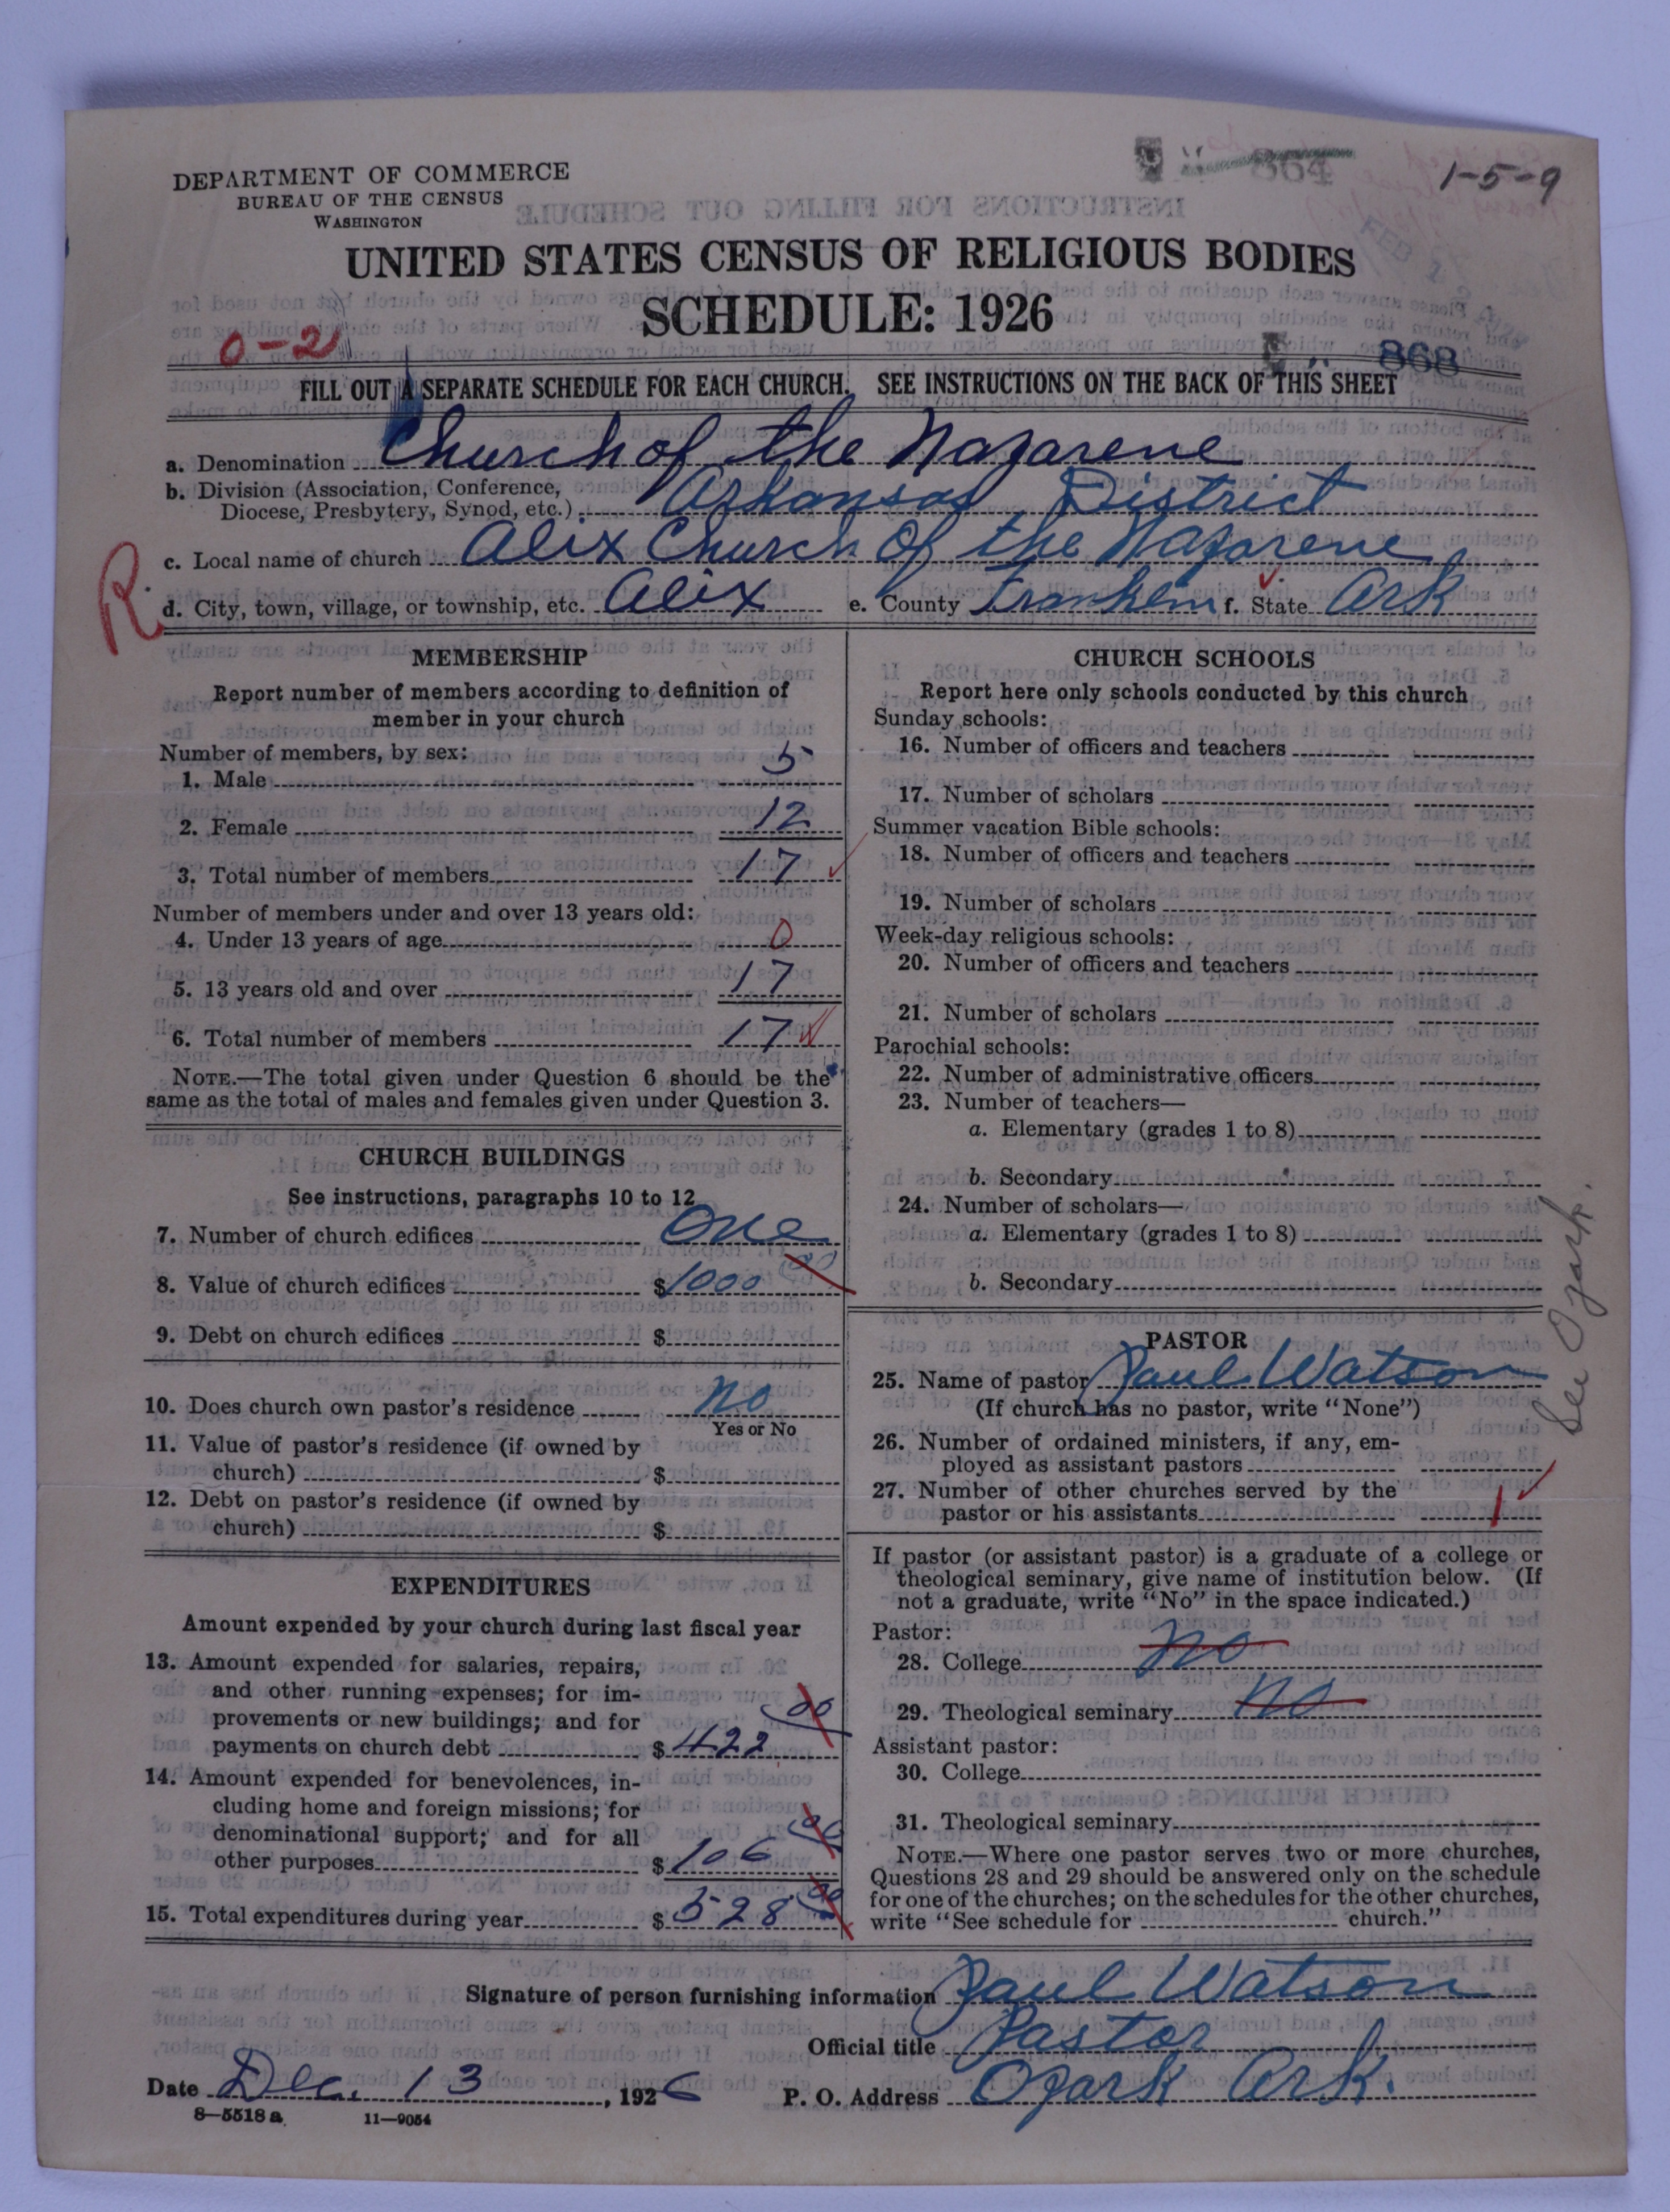 DEPARTMENT OF COMMERCE
BUREAU OF THE CENSUS
WASHINGTON
864
1-5-9
FEB
UNITED STATES CENSUS OF RELIGIOUS BODIES
SCHEDULE: 1926
0-2
868
FILL OUT A SEPARATE SCHEDULE FOR EACH CHURCH. SEE INSTRUCTIONS ON THE BACK OF THIS SHEET
a. Denomination Church of the Nazarene
b. Division (Association, Conference, Diocese, Presbytery, Synod, etc.) Arkansas District
c. Local name of church Alix Church Of the Nazarene
R.
d. City, town, village, or township, etc. Alix e. County Franklin f. State Ark
MEMBERSHIP
Report number of members according to definition of
member in your church
Number of members, by sex:
1. Male 5
2. Female 12
3. Total number of members 17
Number of members under and over 13 years old:
4. Under 13 years of age 0
5. 13 years old and over 17
6. Total number of members 17
NOTE.—The total given under Question 6 should be the
same as the total of males and females given under Question 3.
CHURCH BUILDINGS
See instructions, paragraphs 10 to 12
7. Number of church edifices One
8. Value of church edifices $1000 00
9. Debt on church edifices $
10. Does church own pastor's residence No
Yes or No
11. Value of pastor's residence (if owned by
church) $
12. Debt on pastor's residence (if owned by
church) $
EXPENDITURES
Amount expended by your church during last fiscal year
13. Amount expended for salaries, repairs,
and other running expenses; for im-
provements or new buildings; and for
payments on church debt $422 00
14. Amount expended for benevolences, in-
cluding home and foreign missions; for
denominational support; and for all
other purposes $106 00
15. Total expenditures during year $528 00
CHURCH SCHOOLS
Report here only schools conducted by this church
Sunday schools:
16. Number of officers and teachers
17. Number of scholars
Summer vacation Bible schools:
18. Number of officers and teachers
19. Number of scholars
Week-day religious schools:
20. Number of officers and teachers
21. Number of scholars
Parochial schools:
22. Number of administrative officers
23. Number of teachers—
a. Elementary (grades 1 to 8)
b. Secondary
24. Number of scholars—
a. Elementary (grades 1 to 8)
b. Secondary
See Ozark.
PASTOR
25. Name of pastor Paul Watson
(If church has no pastor, write "None")
26. Number of ordained ministers, if any, em-
ployed as assistant pastors
27. Number of other churches served by the
pastor or his assistants 1
If pastor (or assistant pastor) is a graduate of a college or
theological seminary, give name of institution below. (If
not a graduate, write "No" in the space indicated.)
Pastor:
28. College No
29. Theological seminary No
Assistant pastor:
30. College
31. Theological seminary
NOTE.—Where one pastor serves two or more churches,
Questions 28 and 29 should be answered only on the schedule
for one of the churches; on the schedules for the other churches,
write "See schedule for church."
Signature of person furnishing information Paul Watson
Official title Pastor
Date Dec. 13, 1926 P. O. Address Ozark Ark.
8—5518a 11—9054